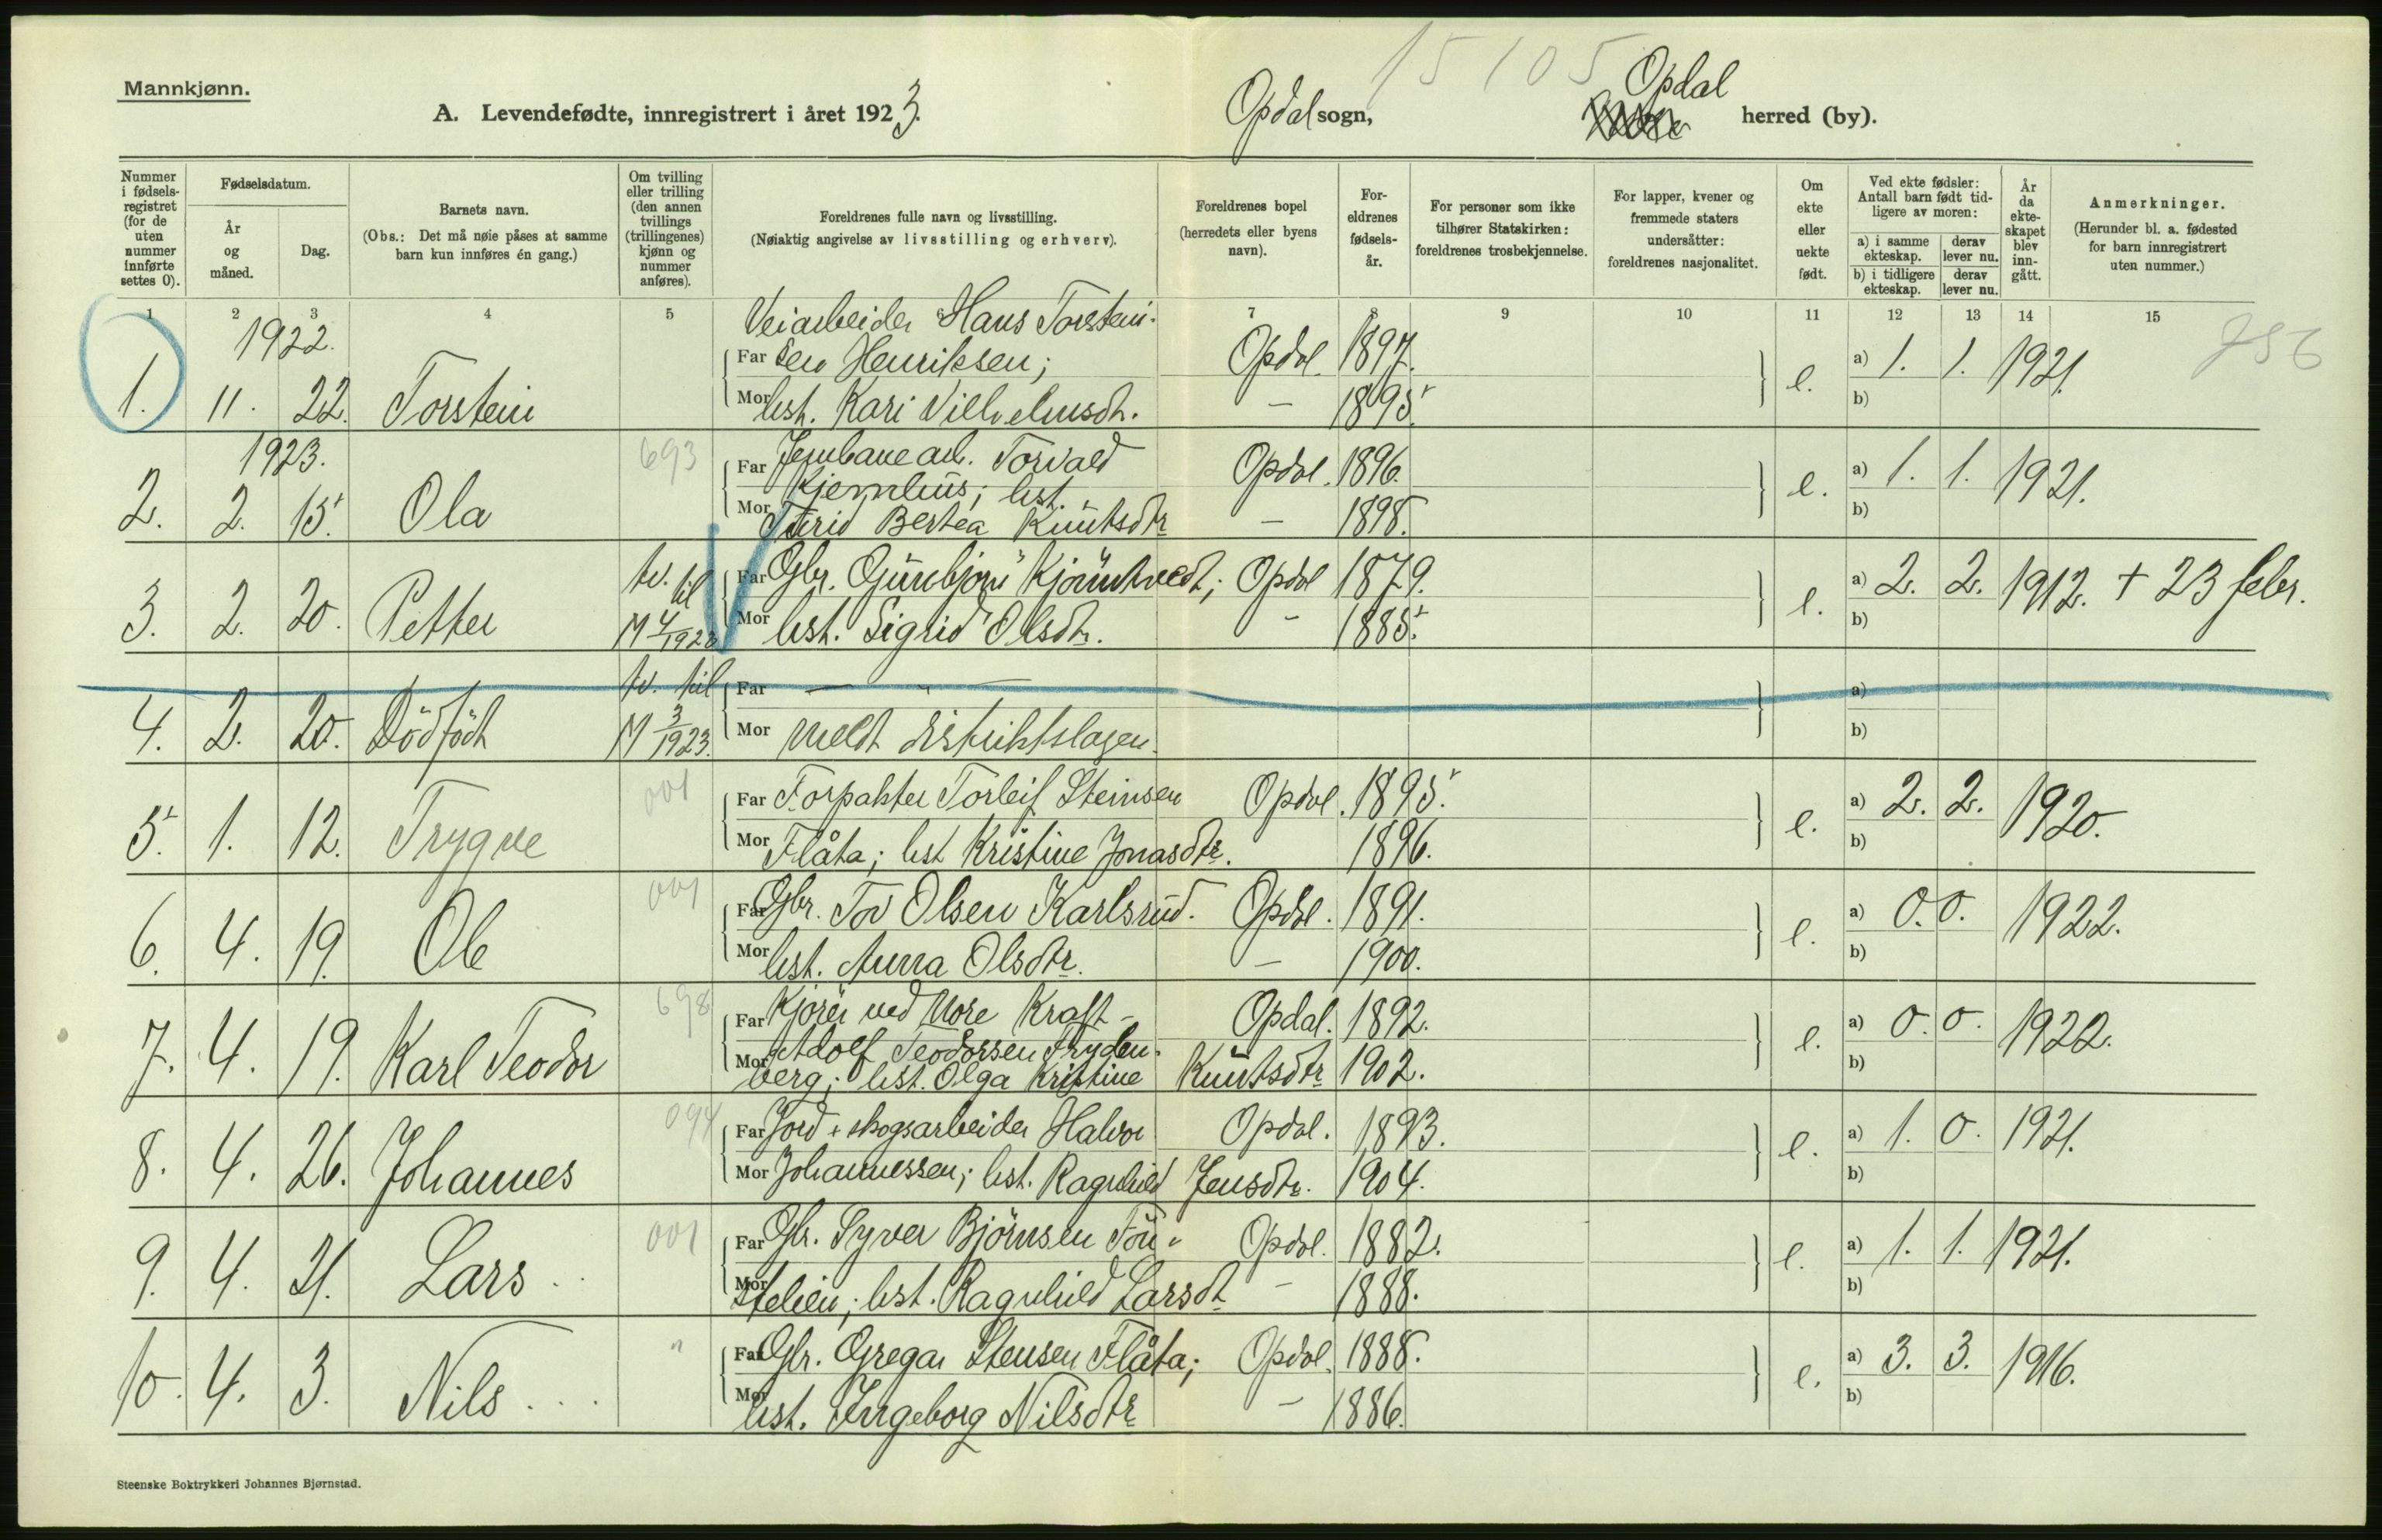 15105
Mannkjønn.
A. Levendefødte, innregistrert i året 1923.
Opdal sogn,
Opdal herred (by).
Nummer i fødselsregistret (for de uten nummer innførte settes 0).
Fødselsdatum.
År og måned.
Dag.
Barnets navn.
(Obs.: Det må nøie påses at samme barn kun innføres én gang.)
Om tvilling eller trilling (den annen tvillings (trillingenes) kjønn og nummer anføres).
Foreldrenes fulle navn og livsstilling.
(Nøiaktig angivelse av livsstilling og erhverv).
Foreldrenes bopel (herredets eller byens navn).
Foreldrenes fødselsår.
For personer som ikke tilhører Statskirken: foreldrenes trosbekjennelse.
For lapper, kvener og fremmede staters undersåtter: foreldrenes nasjonalitet.
Om ekte eller uekte født.
Ved ekte fødsler: Antall barn født tidligere av moren:
a) i samme ekteskap.
derav lever nu.
b) i tidligere ekteskap.
derav lever nu.
År da ekteskapet blev inngått.
Anmerkninger.
(Herunder bl. a. fødested for barn innregistrert uten nummer.)
1 2 3 4 5 6 7 8 9 10 11 12 13 14 15
1922. Veiarbeider Hans Torstein-
Far sen Henriksen; Opdal. 1897. a) 1. 1. 1921.
1. 11. 22. Torstein Mor hst. Kari Vilhelmsdtr. — 1895. e. b)
1923. 693 Far Jernbanearb. Torvald Opdal. 1896. a) 1. 1. 1921.
Kjemhus; hst.
2. 2. 15. Ola Mor Turid Bertea Knutsdtr — 1898. e. b)
tv. til Far Gbr. Gunbjørn Kjøntvedt; Opdal 1879. a) 2. 2. 1912. + 23 febr.
3. 2. 20. Petter M 4/1923 Mor hst. Sigrid Olsdtr. - 1885. e. b)
tv. til Far — " — a)
4. 2. 20. Dödfödt M 3/1923. Mor meldt distriktslægen. b)
001 Far Forpakter Torleif Steinsen Opdal. 1895. a) 2. 2. 1920.
5. 1. 12. Trygve Mor Flåta; hst Kristine Jonasdtr. 1896. e. b)
001 Far Gbr. Tov Olsen Karlsrud. Opdal. 1891. a) 0. 0. 1922.
6. 4. 19. Ole Mor hst. Anna Olsdtr. — 1900. e. b)
698 Far Kjører ved Nore Kraft- Opdal. 1892. a) 0. 0. 1922.
Adolf Teodorsen Fryden-
7. 4. 19. Karl Teodor Mor berg; hst. Olga Kristine Knutsdtr 1902. e. b)
094 Far Jord & skogsarbeider Halvor Opdal. 1893. a) 1. 0. 1921.
8. 4. 26. Johannes Mor Johannessen; hst. Ragnhild Jensdtr. 1904. e. b)
001 Far Gbr. Syver Björnsen Tön- Opdal. 1882. a) 1. 1. 1921.
9. 4. 21. Lars Mor stelien; hst. Ragnhild Larsdt - 1888. e. b)
" Far Gbr. Gregar Stensen Flåta; Opdal. 1888. a) 3. 3. 1916.
10. 4. 3. Nils Mor hst. Ingeborg Nilsdtr — 1886. e. b)
Steenske Boktrykkeri Johannes Bjørnstad.